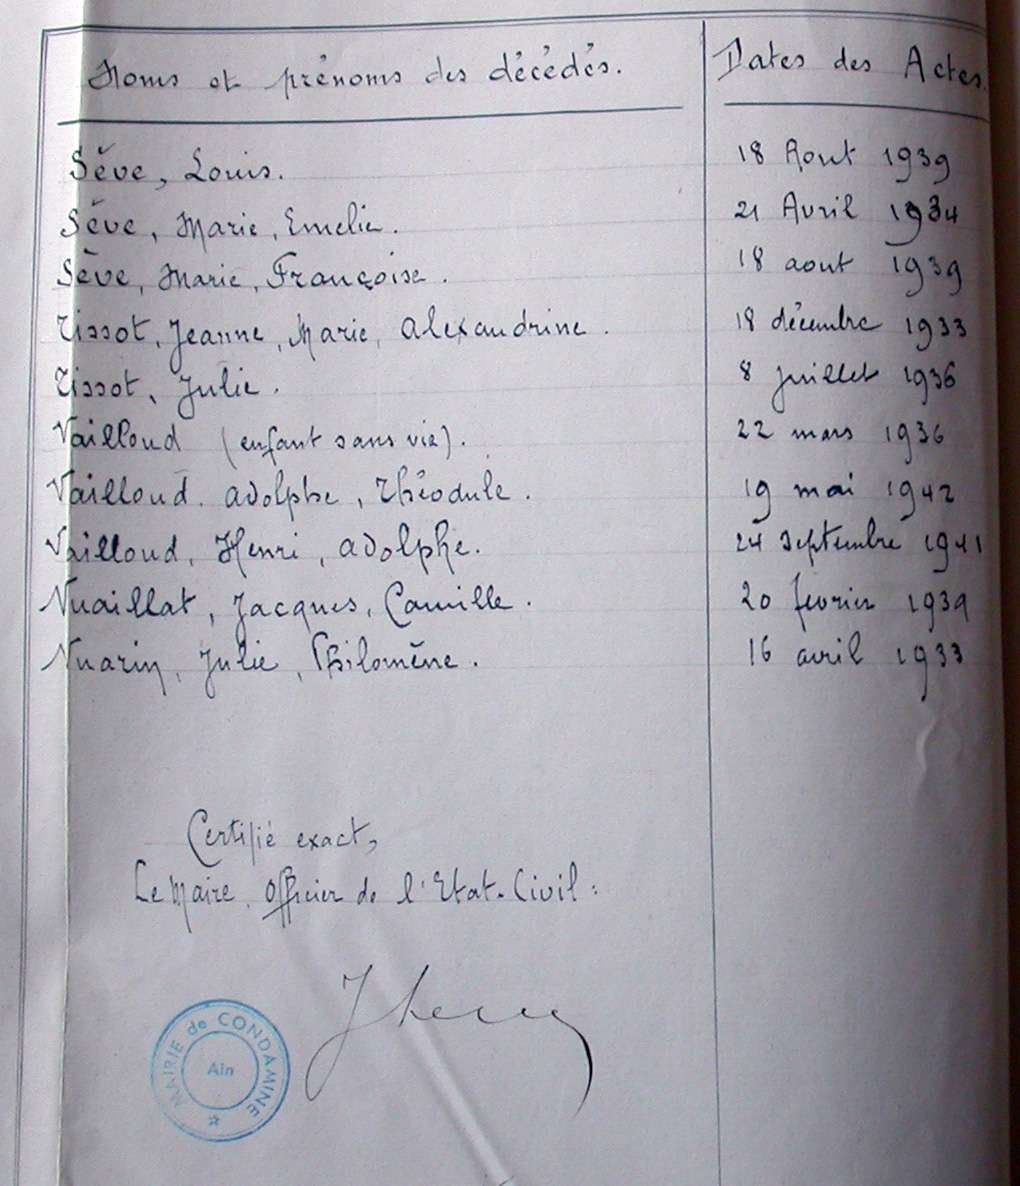 Noms et prénoms des décédés. Dates des Actes.
Sève, Louis. 18 Aout 1939
Sève, Marie, Emelie. 21 Avril 1934
Sève, Marie, Françoise. 18 aout 1939
Tissot, Jeanne, Marie, Alexandrine. 18 décembre 1933
Tissot, Julie. 8 juillet 1936
Vailloud (enfant sans vie). 22 mars 1936
Vailloud. Adolphe, Théodule. 19 mai 1942
Vailloud, Henri, Adolphe. 24 septembre 1941
Vuaillat, Jacques, Camille. 20 fevrier 1939
Vuarin, Julie, Philomène. 16 avril 1933
Certifié exact,
Le Maire, Officier de l'Etat-Civil:
MAIRIE de CONDAMINE
Ain